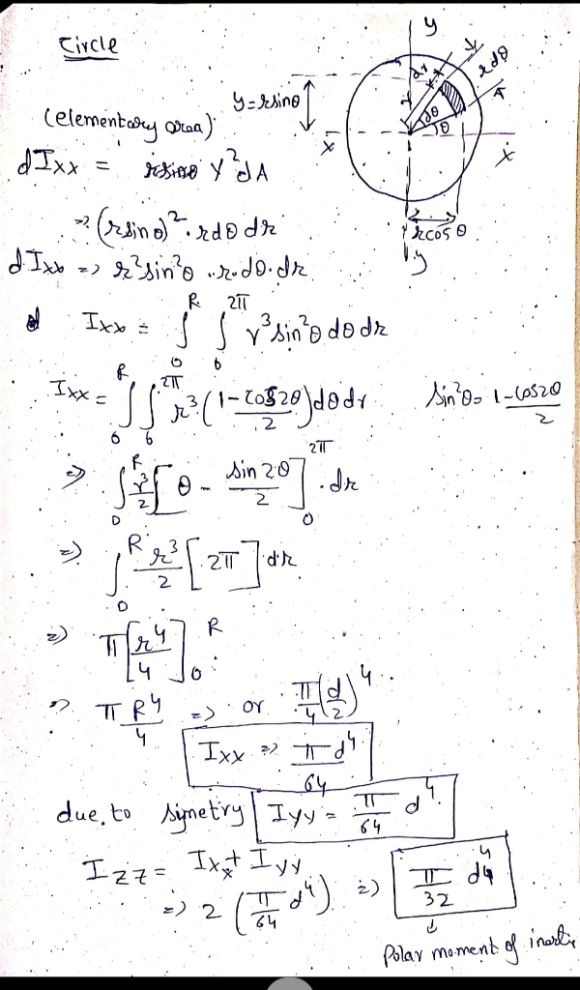 Circle
y
dr
r dθ
y=rsinθ
r
dθ
θ
x
x
rcosθ
y
(elementary area)
dIxx = y²dA
=> (rsinθ)².rdθdr
dIxx => r²sin²θ.r.dθ.dr
Ixx = ∫₀ᴿ ∫₀^2π r³sin²θdθdr
Ixx = ∫₀ᴿ ∫₀^2π r³(1-cos2θ/2)dθdr sin²θ = 1-cos2θ/2
=> ∫₀ᴿ r³/2 [θ - sin2θ/2]₀^2π .dr
=> ∫₀ᴿ r³/2 [2π] dr
=> π[r⁴/4]₀ᴿ
=> πR⁴/4 => or π/4(d/2)⁴
Ixx => πd⁴/64
due to symetry Iyy = π/64 d⁴
Izz = Ixx + Iyy
=> 2(π/64 d⁴) => π/32 d⁴
Polar moment of inertia